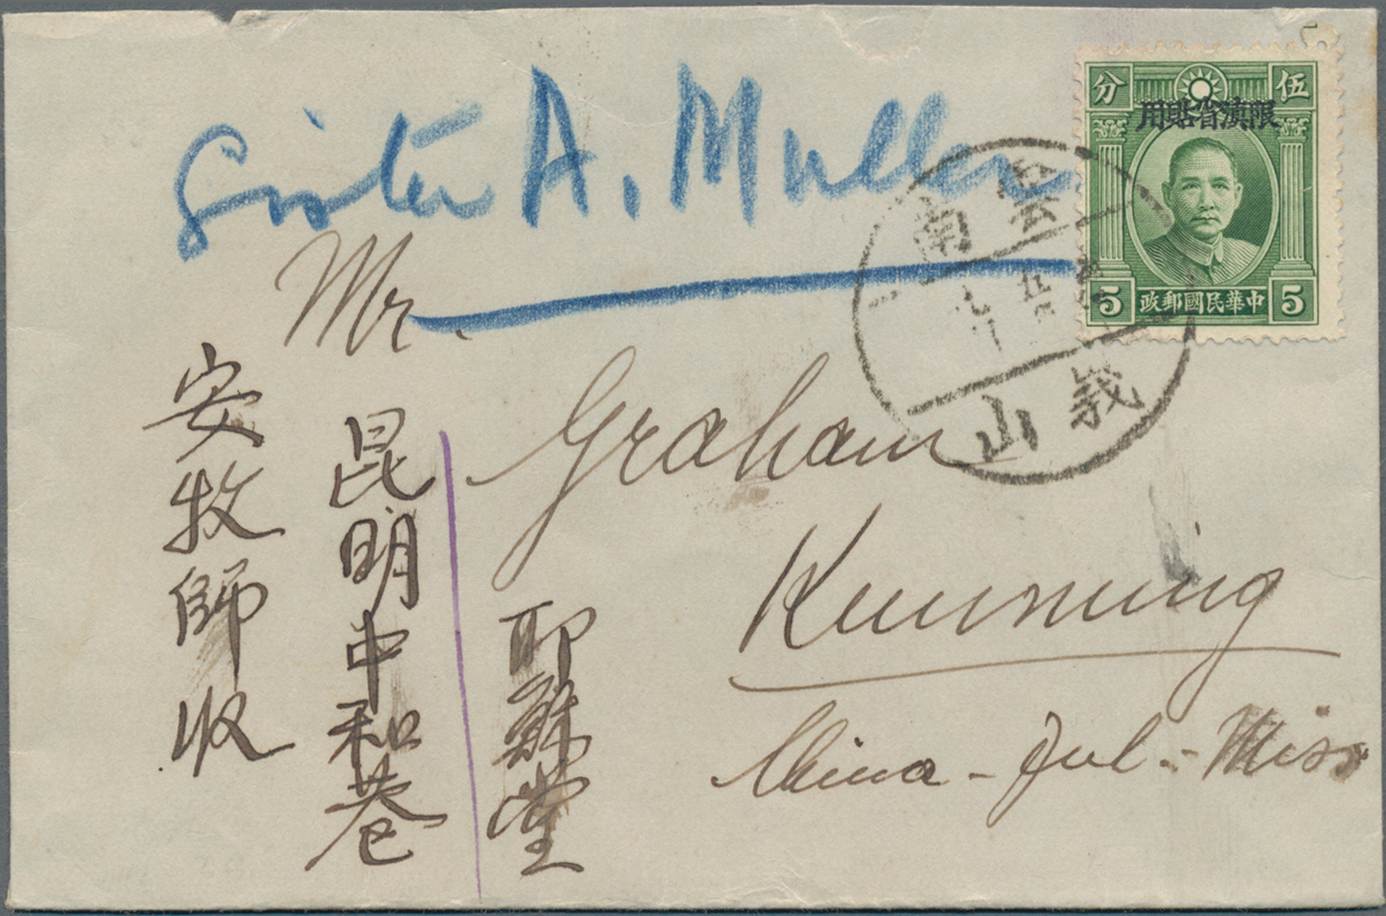 Sister A. Muller
Mr.
Graham
Kunming
China - Inl - Miss
耶穌堂
昆明中和巷
安牧師收
分 伍
用貼省滇限
5 政郵國民華中 5
南雲
山峩